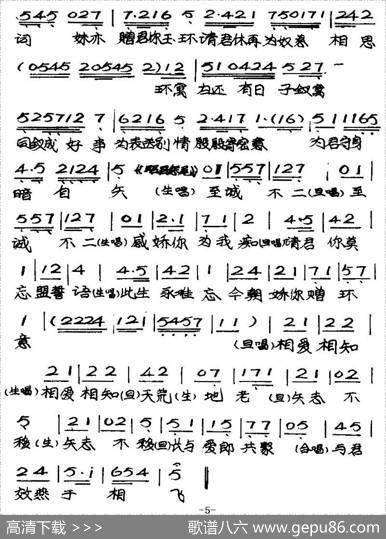 545 027 | 7.216 5 2.421 750171 | 242
词 妹亦 赠君你玉环请君休再为奴愁 相思
(0545 20545 2)12 | 510424 5 27 -
环寓当还 有日 子叙寓
525712 7 | 6216 5 2.417 1.(16) | 5
好事 为表惜别情 殷殷 意 为君守
4.5 2124 | 5 01 | 557 | 127 · | 01 |
暗自矢 (生唱) 至诚 不二 (旦唱) 至
557 | 127 | 01 | 2.1 | 71 | 2 | 4.5 | 42 |
诚 不二 (生唱) 感娇你 为我痴 (旦唱) 请君 你莫
1 | 12 | 4 | 4.5 | 42 | 1 | 24 | 21 | 71 | 57 |
忘盟誓语 (生唱) 此生 永难忘 今朝 娇你赠环
1 | (2224 | 121 | 5457 | 11) | 21 | 22 |
意 (旦唱) 相爱相知
21 | 22 | 42 | 07 | 171 | 21 | 02 |
(生唱) 相爱相知 (旦) 天荒 (生) 地老 (旦) 矢志 不
5 | 21 | 02 | 5 | 51 | 15 | 77 | 05 | 45 |
移 (生) 矢志 不移 (旦) 长与爱郎 共聚 (合唱) 与君
24 | 5.i | 654 | 5
效燕于相飞
-5-
高清下载 >>>
歌谱八六 www.gepu86.com